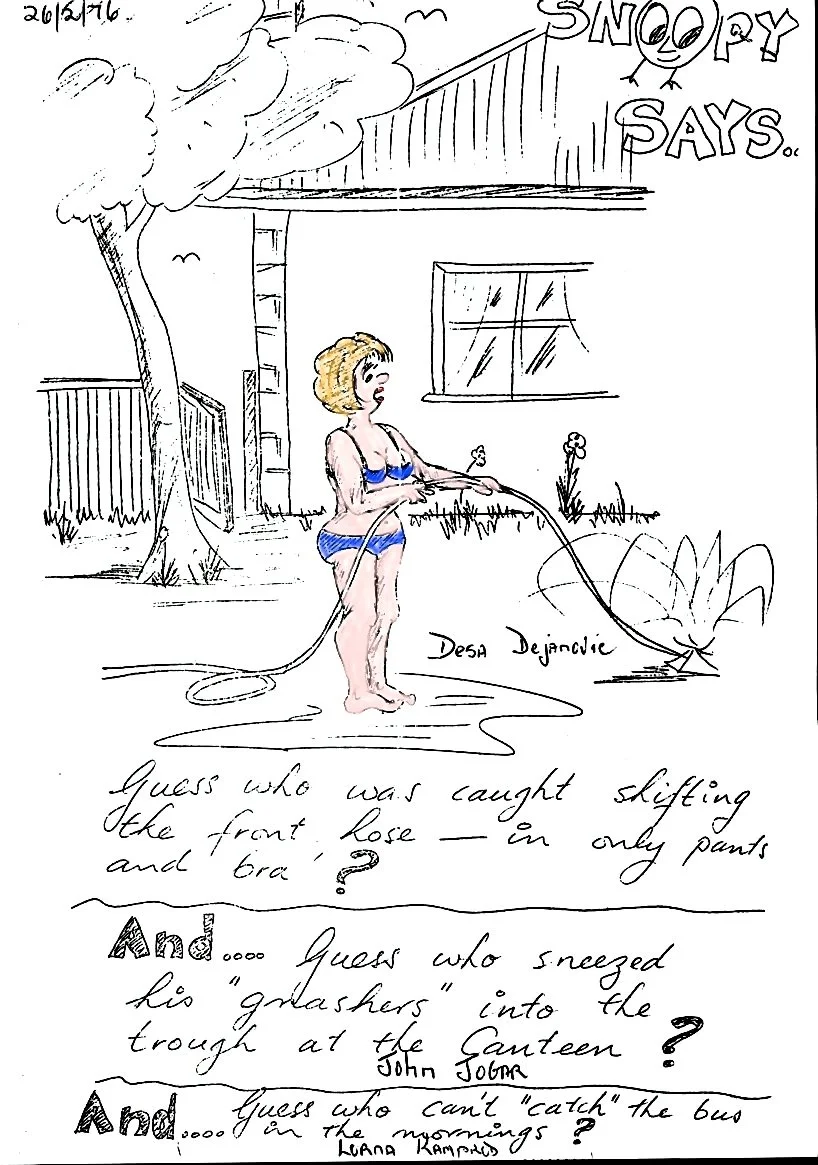 26/2/76.
SNOOPY
SAYS..
Desa Dejanovic
Guess who was caught shifting
the front hose — in only pants
and 'bra'?
And.... Guess who sneezed
his "gnashers" into the
trough at the Canteen ?
John JOGAR
And.... Guess who can't "catch" the bus
in the mornings ?